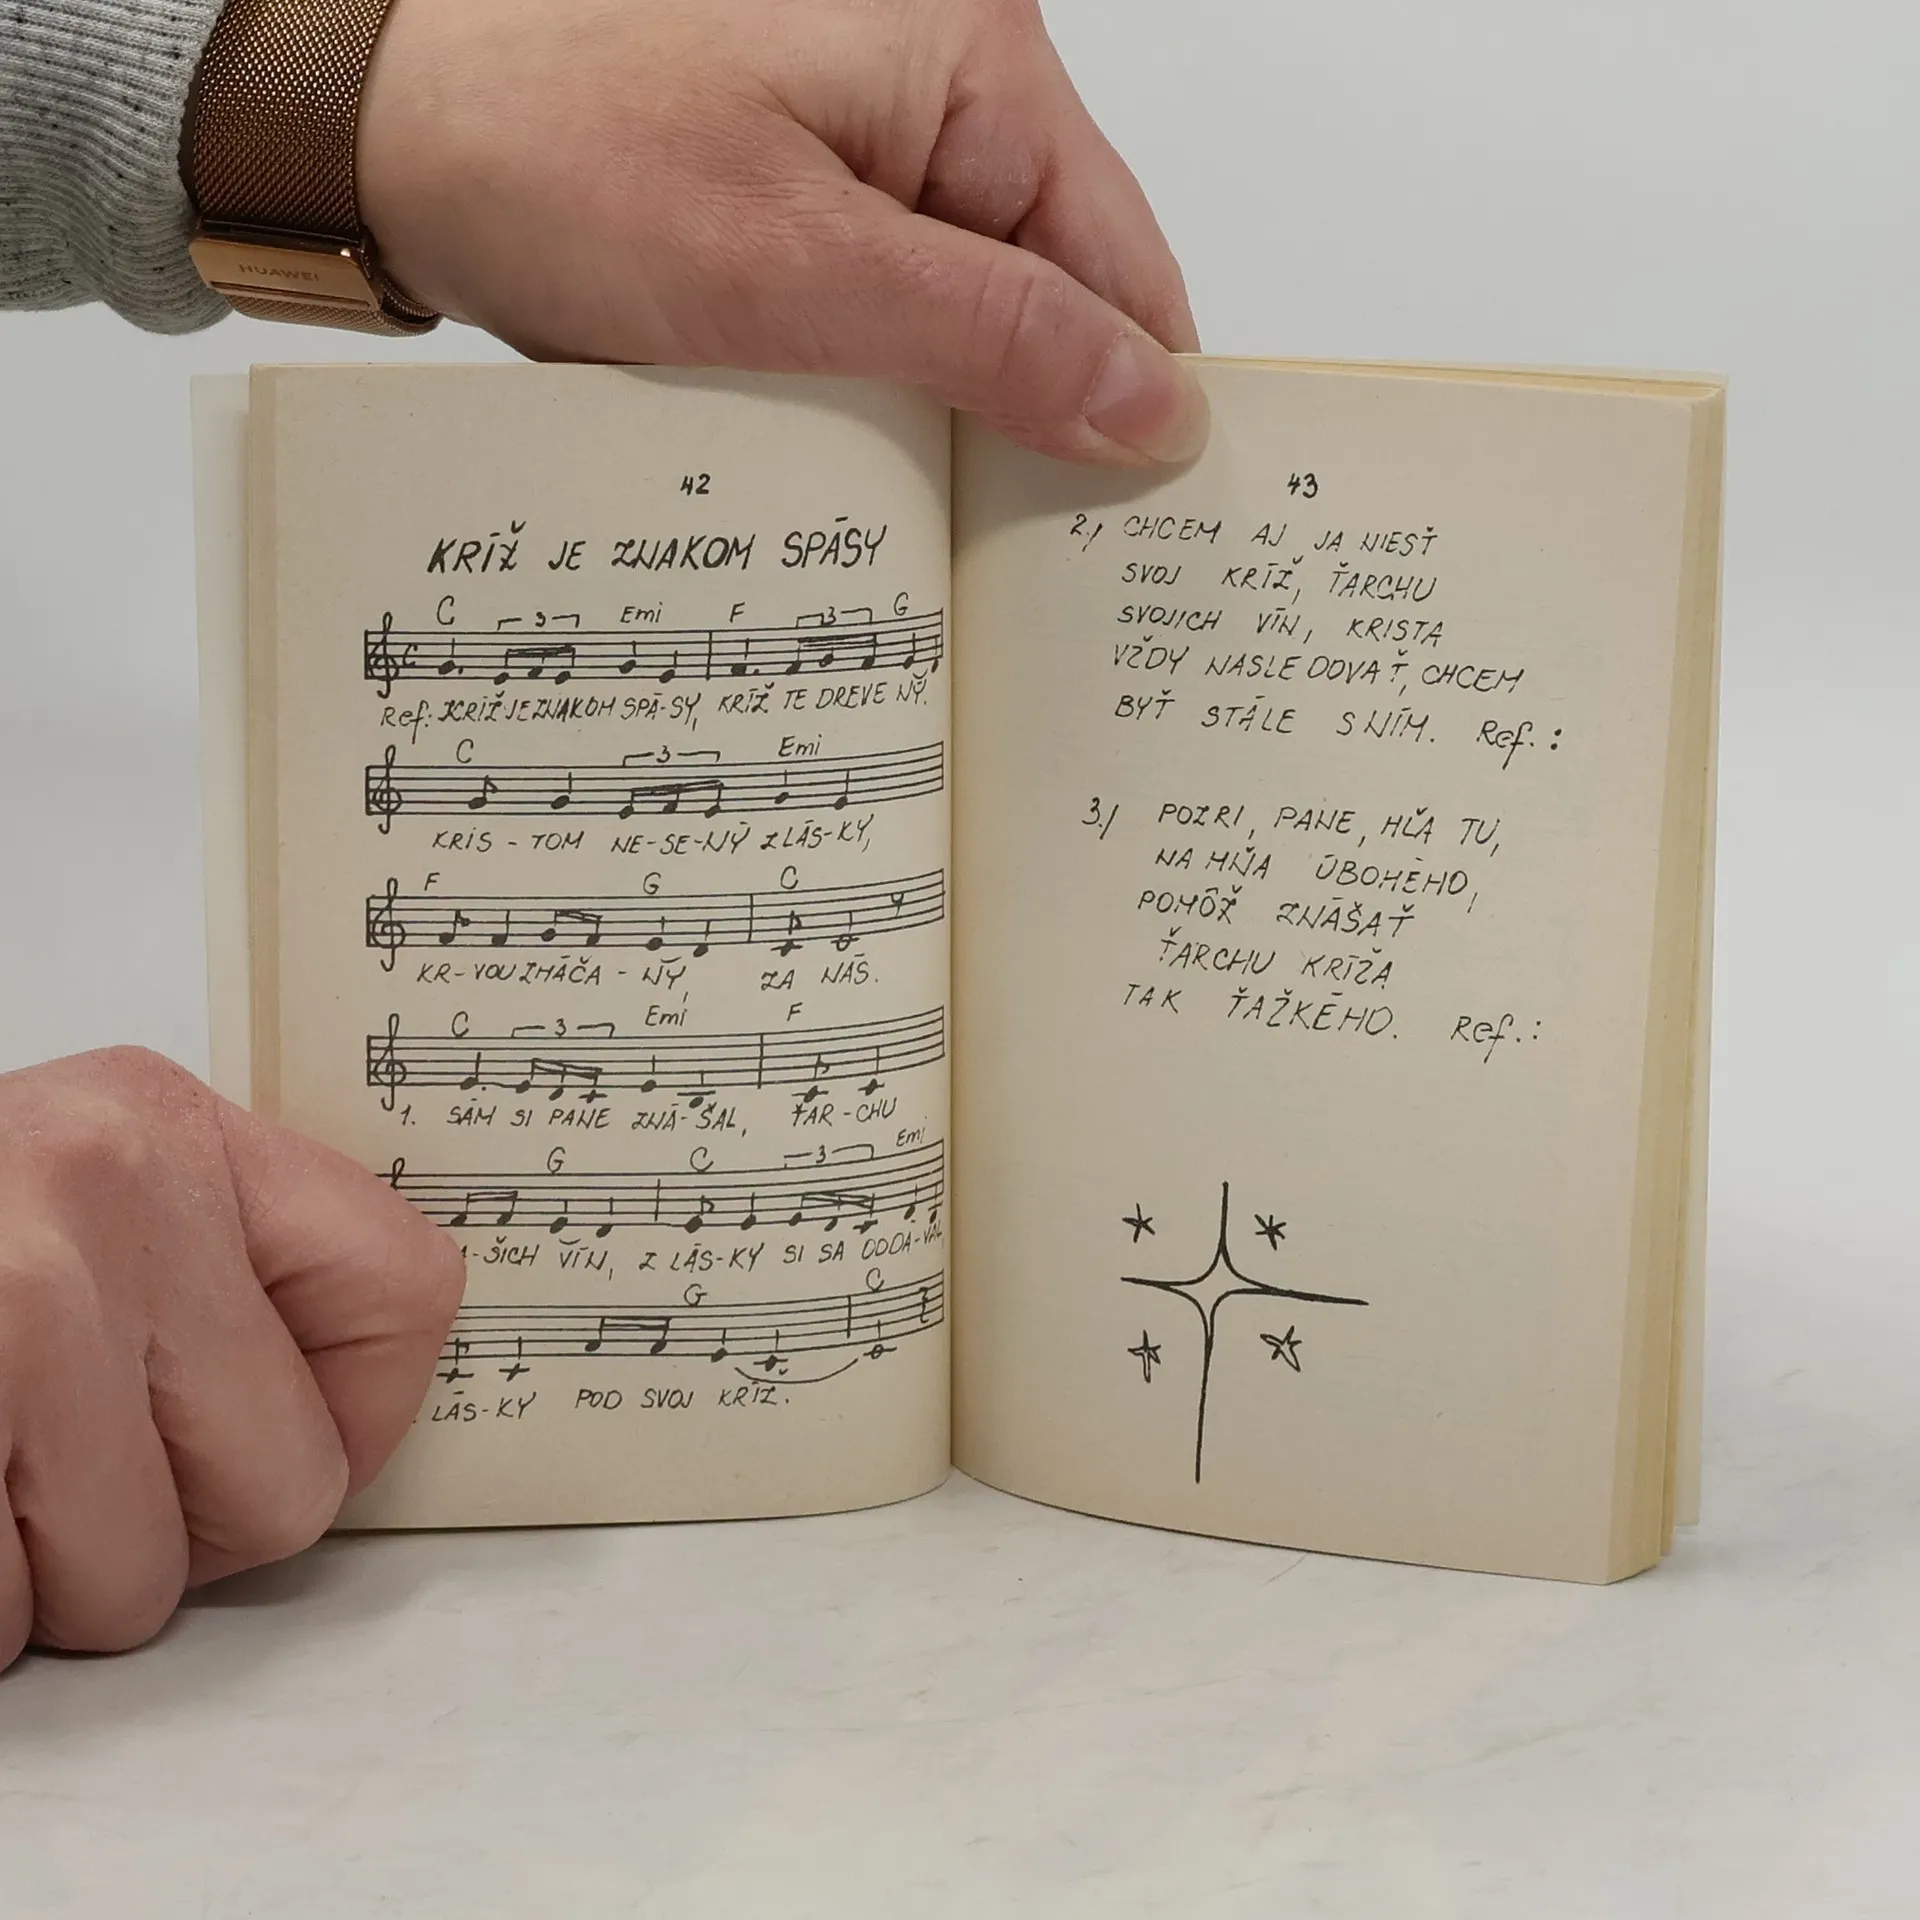 HUAWEI
42
KRÍŽ JE ZNAKOM SPÁSY
C 3 Emi F 3 G
Ref: KRÍŽ JE ZNAKOM SPÁ-SY, KRÍŽ TE DREVE NÝ.
C 3 Emi
KRIS - TOM NE-SE-NÝ Z LÁS-KY,
F G C
KR-VOU ZMÁČA - NÝ, ZA NÁS.
C 3 Emi F
1. SÁM SI PANE ZNÁ-ŠAL, ŤAR-CHU
G C 3 Emi
-ŠICH VÍN, Z LÁS-KY SI SA ODDÁ-VAL,
G C
LÁS-KY POD SVOJ KRÍŽ.
43
2./ CHCEM AJ JA NIESŤ
SVOJ KRÍŽ, ŤARCHU
SVOJICH VÍN, KRISTA
VŽDY NASLEDOVAŤ, CHCEM
BYŤ STÁLE S NÍM. Ref. :
3./ POZRI, PANE, HĽA TU,
NA MŇA ÚBOHÉHO,
POMÔŽ ZNÁŠAŤ
ŤARCHU KRÍŽA
TAK ŤAŽKÉHO. Ref. :